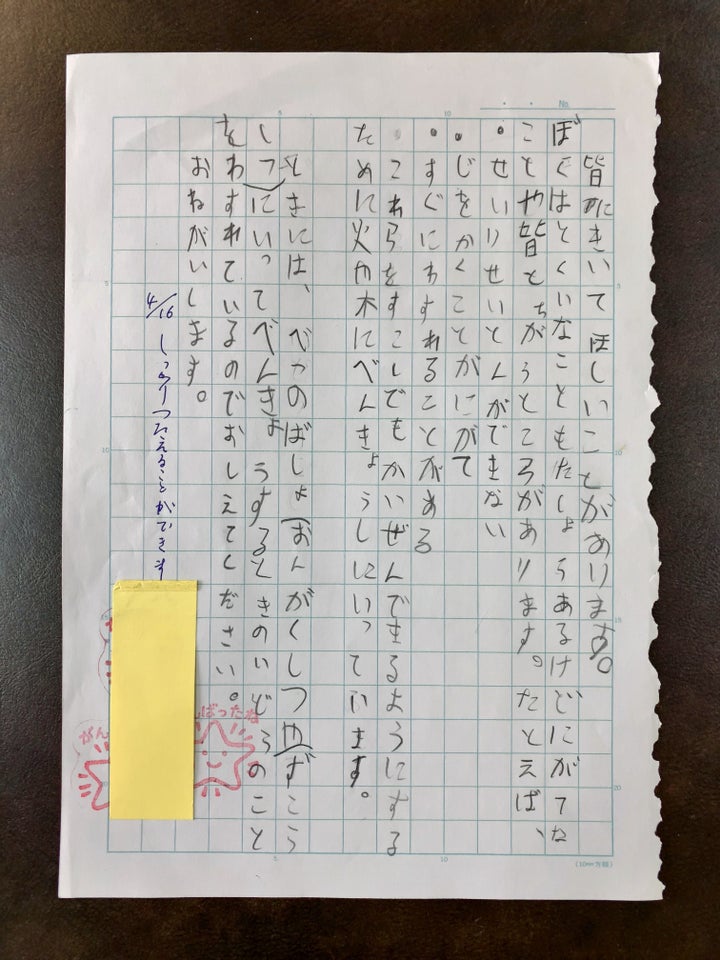 No.
皆にきいてほしいことがあります。
ぼくはとくいなこともたしょうあるけどにがてな
ことや皆とちがうところがあります。たとえば、
・せいりせいとんができない
・じをかくことがにがて
・すぐにわすれることがある
これらをすこしでもかいぜんできるようにする
ために火や木にべんきょうしにいっています。
ときには、べつのばしょ(おんがくしつやずこう
しつ)にいってべんきょうするときのいどうのこと
をわすれているのでおしえてください。
おねがいします。
4/16 しっかりつたえることができま
がん
ばったね
(10mm方眼)